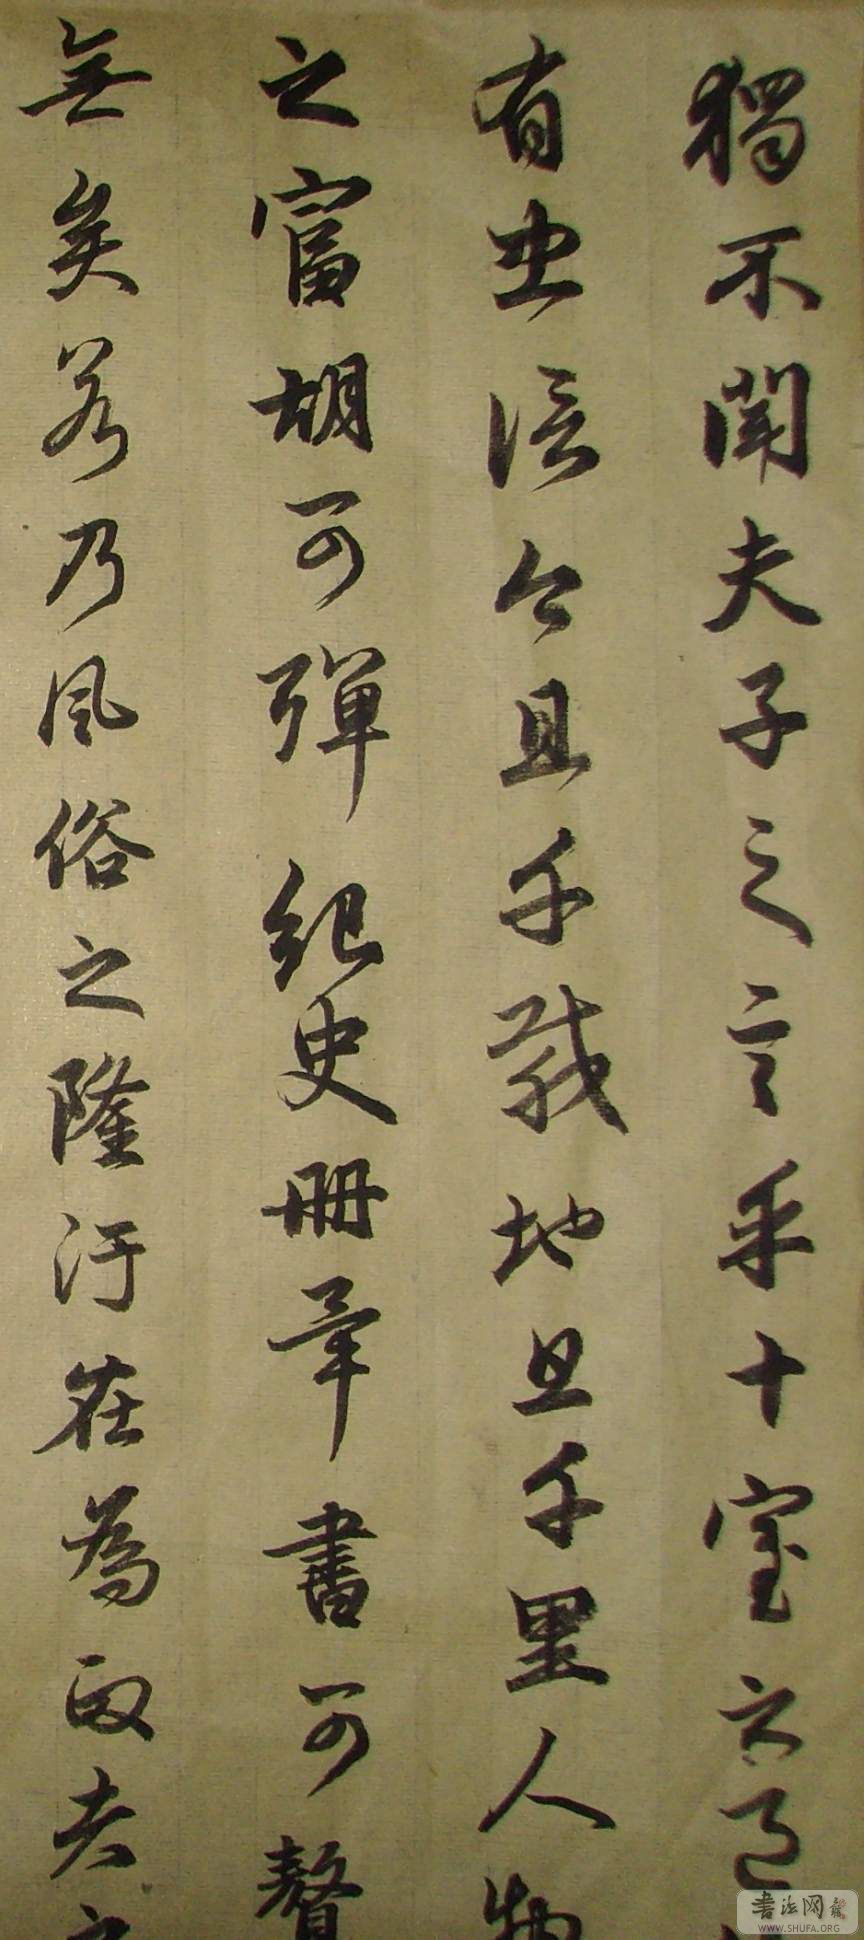 獨不聞夫子之言乎十室之邑
有忠信今且千載地且千里人物
之富胡可彈紀史冊書可
無矣若乃風俗之隆汙在為政者之
書法网
WWW.SHUFA.ORG